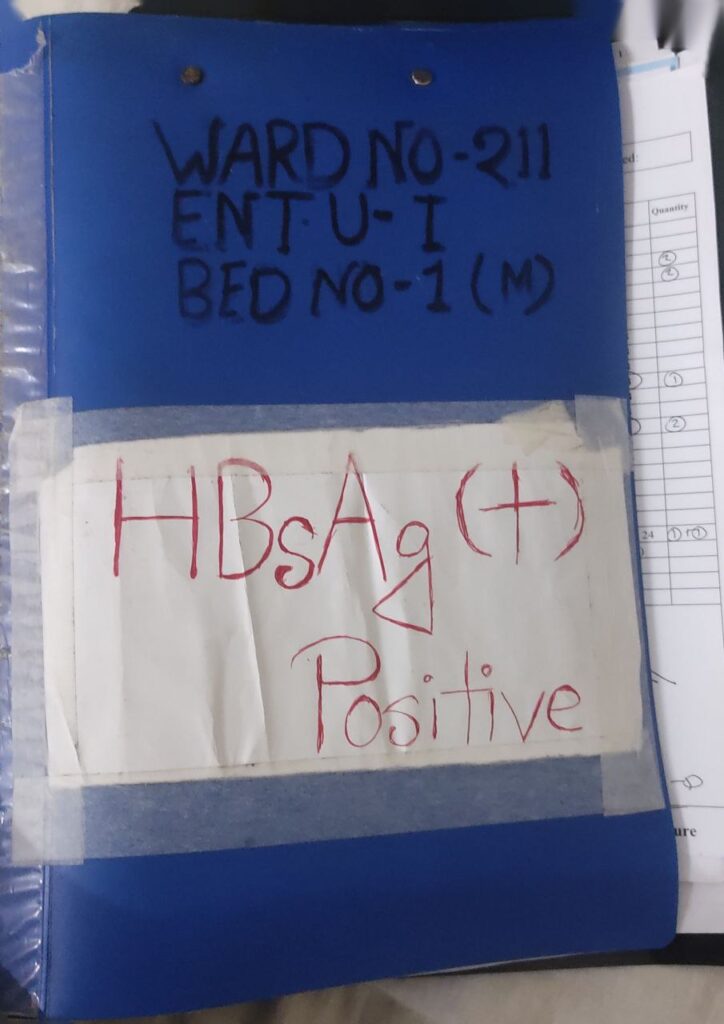 WARD NO-211
ENT U-I
BED NO-1 (M)
HBsAg (+)
Positive
Quantity
2
2
1
2
24